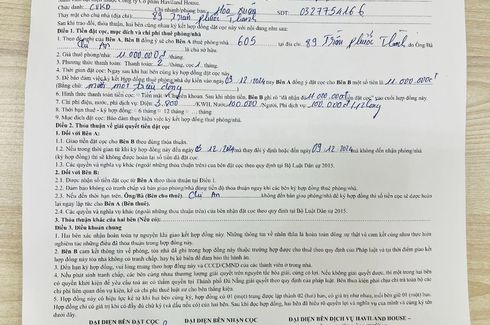 Chức danh: CVKD Chi nhánh/phòng ban: Hòa Xuân SĐT: 0327754166
Thay mặt cho chủ nhà (địa chỉ): 89 Trần Phước Thành
Sau khi trao đổi, thỏa thuận, hai bên cùng nhau ký kết hợp đồng đặt cọc này với nội dung như sau:
Điều 1. Tiền đặt cọc, mục đích và chi phí thuê phòng/nhà
1. Theo đề nghị của Bên A, Bên B đồng ý sẽ cho Bên A thuê phòng/nhà 605 tại địa chỉ: 89 Trần Phước Thành do Ông/Bà
Chị An là chủ sở hữu.
2. Giá thuê phòng/nhà: 11.000.000đ/tháng.
3. Phương thức thanh toán: Thanh toán: 2 tháng, cọc 1 tháng.
4. Thời gian đặt cọc: Ngay sau khi hai bên cùng ký hợp đồng đặt cọc này
5. Để đảm bảo việc ký kết Hợp đồng thuê phòng/nhà dự kiến vào ngày 09.12.2024 nay Bên A đồng ý đặt cọc cho Bên B một số tiền là 11.000.000đ
(Bằng chữ: mười một triệu đồng)
6. Hình thức thanh toán tiền cọc: Tiền mặt Chuyển khoản. Sau khi nhận tiền, Bên B ghi rõ “đã nhận đủ 11.000.000đ tiền đặt cọc” vào cuối hợp đồng này.
7. Chi phí điện, nước, phí dịch vụ: Điện 3.800 /KWH, Nước 100.000 /Người, Phí dịch vụ 100.000đ/phòng
8. Thời hạn thuê hợp đồng: 6 tháng 12 tháng tháng
9. Mục đích đặt cọc: Bảo đảm thực hiện việc ký kết hợp đồng thuê phòng/nhà.
Điều 2. Thỏa thuận về giải quyết tiền đặt cọc
1. Đối với Bên A:
1.1. Giao tiền đặt cọc cho Bên B theo đúng thỏa thuận.
1.2. Nếu trong thời gian từ khi ký hợp đồng này đến ngày 12.2024 mà thay đổi ý định hoặc đến ngày 09.12.2024 mà không đến nhận phòng/nhà
(ký hợp đồng) thì sẽ không được hoàn lại số tiền đã đặt cọc.
1.3. Các quyền và nghĩa vụ khác (ngoài những thỏa thuận trên) của bên đặt cọc theo quy định tại Bộ Luật Dân sự 2015.
2. Đối với Bên B:
2.1. Được nhận số tiền đặt cọc từ Bên A theo thỏa thuận tại Điều 1.
2.2. Đảm bảo không có tranh chấp và bàn giao phòng/nhà đúng tiến độ thỏa thuận ngay khi các bên ký hợp đồng thuê phòng/nhà.
2.3. Nếu đến thời hạn trên, Ông/Bà (Bên cho thuê) Chị An không đến bàn giao phòng/nhà để ký hợp đồng thì số tiền cọc sẽ được hoàn
lại ngay lập tức cho Bên A (Bên thuê).
2.4. Các quyền và nghĩa vụ khác (ngoài những thỏa thuận trên) của bên nhận đặt cọc theo quy định tại Bộ Luật Dân sự 2015.
3. Thỏa thuận khác của hai bên (Nếu có):
Điều 3. Điều khoản chung
1. Hai bên xác nhận hoàn toàn tự nguyện khi giao kết hợp đồng này. Những thông tin về nhân thân là hoàn toàn đúng sự thật và cam kết cùng nhau thực hiện
nghiêm túc những điều đã thỏa thuận trong hợp đồng này.
2. Bên B cam kết thông tin về phòng, tòa nhà đã ghi trong hợp đồng này thuộc trường hợp được cho thuê theo quy định của Pháp luật và tại thời điểm giao kết
hợp đồng này tòa nhà không có tranh chấp, hay bị kê biên để đảm bảo thi hành án.
3. Đến hạn ký hợp đồng, vui lòng mang theo hợp đồng này và CCCD/CMND của các thành viên ở trong nhà.
4. Nếu phát sinh tranh chấp, các bên cùng nhau thương lượng giải quyết trên nguyên tắc hòa giải, cùng có lợi. Nếu không giải quyết được, thì một trong hai bên
có quyền khởi kiện để yêu cầu toà án có thẩm quyền tại Thành phố Đà Nẵng giải quyết theo quy định của pháp luật. Bên thua kiện phải chịu trả toàn bộ các
chi phí liên quan đến vụ kiện, kể cả chi phí thuê luật sư cho bên thắng kiện.
5. Hợp đồng này có hiệu lực kể từ khi hai bên cùng ký, hợp đồng có 01 (một) trang được lập thành 02 (hai) bản, có giá trị như nhau, mỗi bên giữ 01 (một) bản.
dưới đây.
ĐẠI DIỆN BÊN ĐẶT CỌC ĐẠI DIỆN BÊN NHẬN CỌC ĐẠI DIỆN BÊN DỊCH VỤ HAVILAND HOUSE